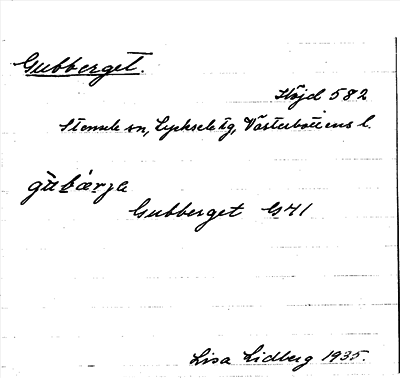 Gubberget.
Höjd 582
Stensele sn, Lycksele tg, Västerbottens l.
gu̇bærja
Gubberget G41
Lisa Lidberg 1935.